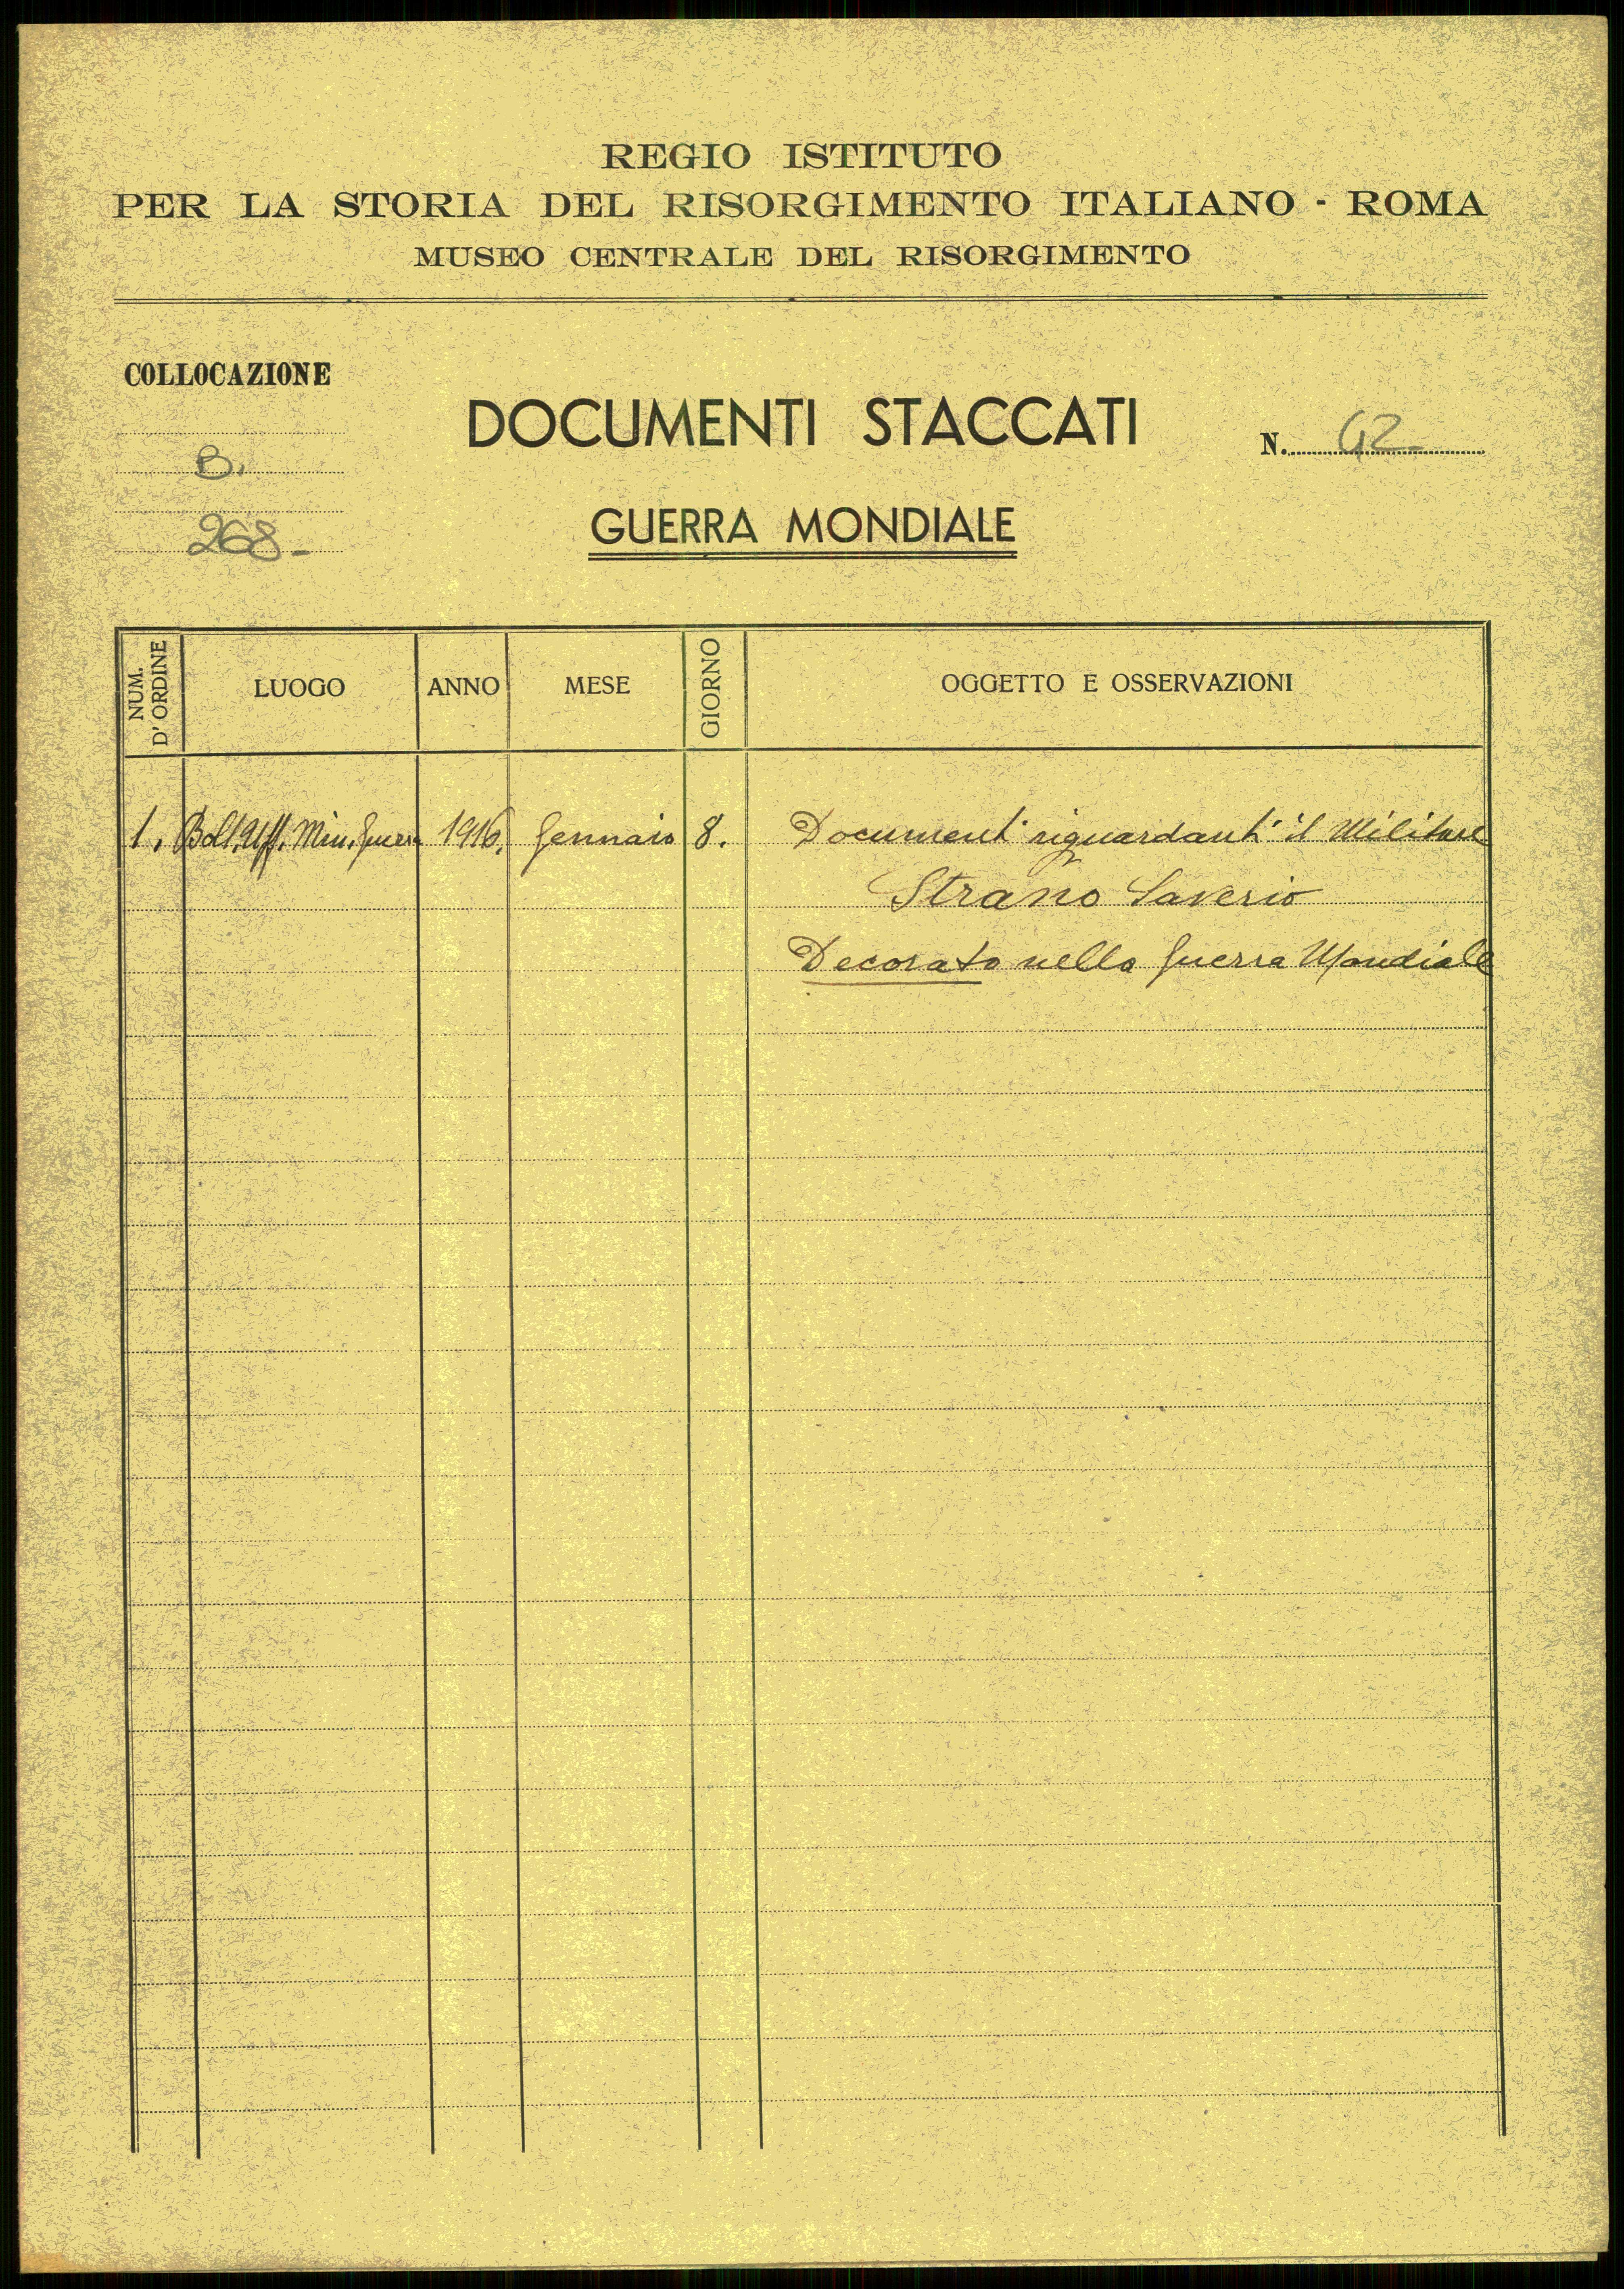 REGIO ISTITUTO
PER LA STORIA DEL RISORGIMENTO ITALIANO - ROMA
MUSEO CENTRALE DEL RISORGIMENTO
COLLOCAZIONE
DOCUMENTI STACCATI
N. 42
B.
GUERRA MONDIALE
268-
NUM. D' ORDINE LUOGO ANNO MESE GIORNO OGGETTO E OSSERVAZIONI
1. Boll. Uff. Min. Guerra 1916. Gennaio 8. Documenti riguardanti il Militare
Strano Saverio
Decorato nella Guerra Mondiale